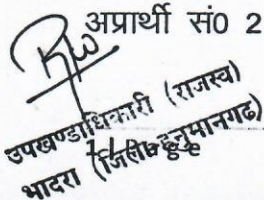 अप्रार्थी सं0 2
उपखण्डाधिकारी (राजस्व)
भादरा (जिला-हनुमानगढ़)